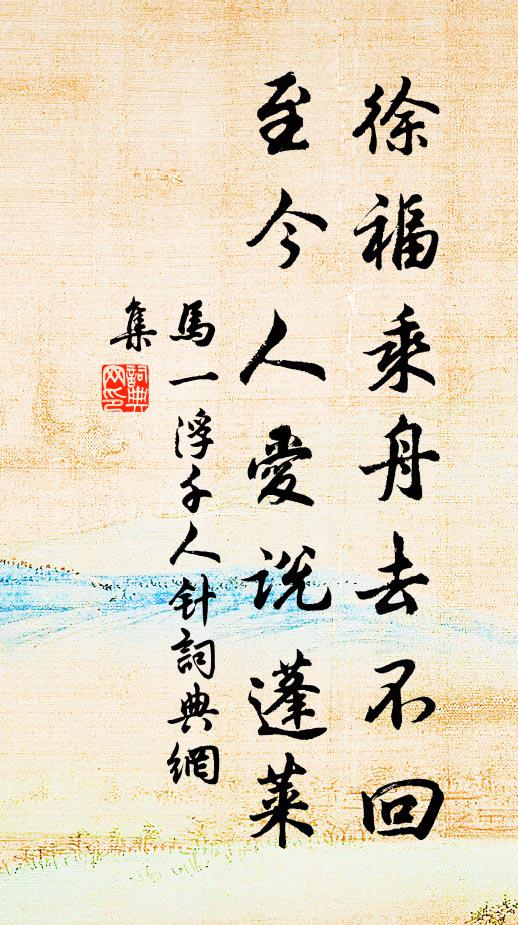 徐福乘舟去不回
至今人愛说蓬萊
馬一浮千人针詞典網
集
詞典
网印